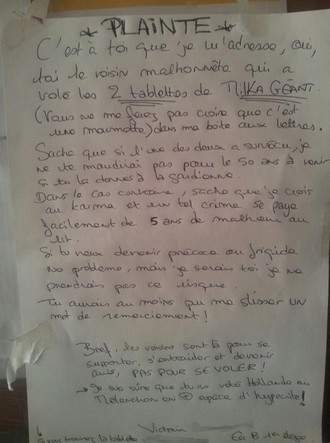 * PLAINTE *
C'est à toi que je m'adresse, oui,
toi le voisin malhonnête qui a
volé les 2 tablettes de MILKA GÉANT.
(Vous ne me ferez pas croire que c'est
une marmotte) dans ma boite aux lettres.
Sache que si l'une des deux a survécu, je
ne te maudirai pas pour les 50 ans à venir
si tu la donnes à la gardienne.
Dans le cas contraire, sache que je crois
au karma et un tel crime se paye
facilement de 5 ans de malheur au
lit.
Si tu veux devenir précoce ou frigide
No problemo, mais je serais toi je ne
prendrais pas ce risque.
Tu aurais au moins pu me glisser UN
mot de remerciement !
Bref, les voisins sont là pour se
supporter, s'entraider et devenir
amis, PAS POUR SE VOLER !
Je suis sûre que tu as voté Hollande ou
Mélenchon en + espèce d'hypocrite !
Victoria
Esc B 1er étage